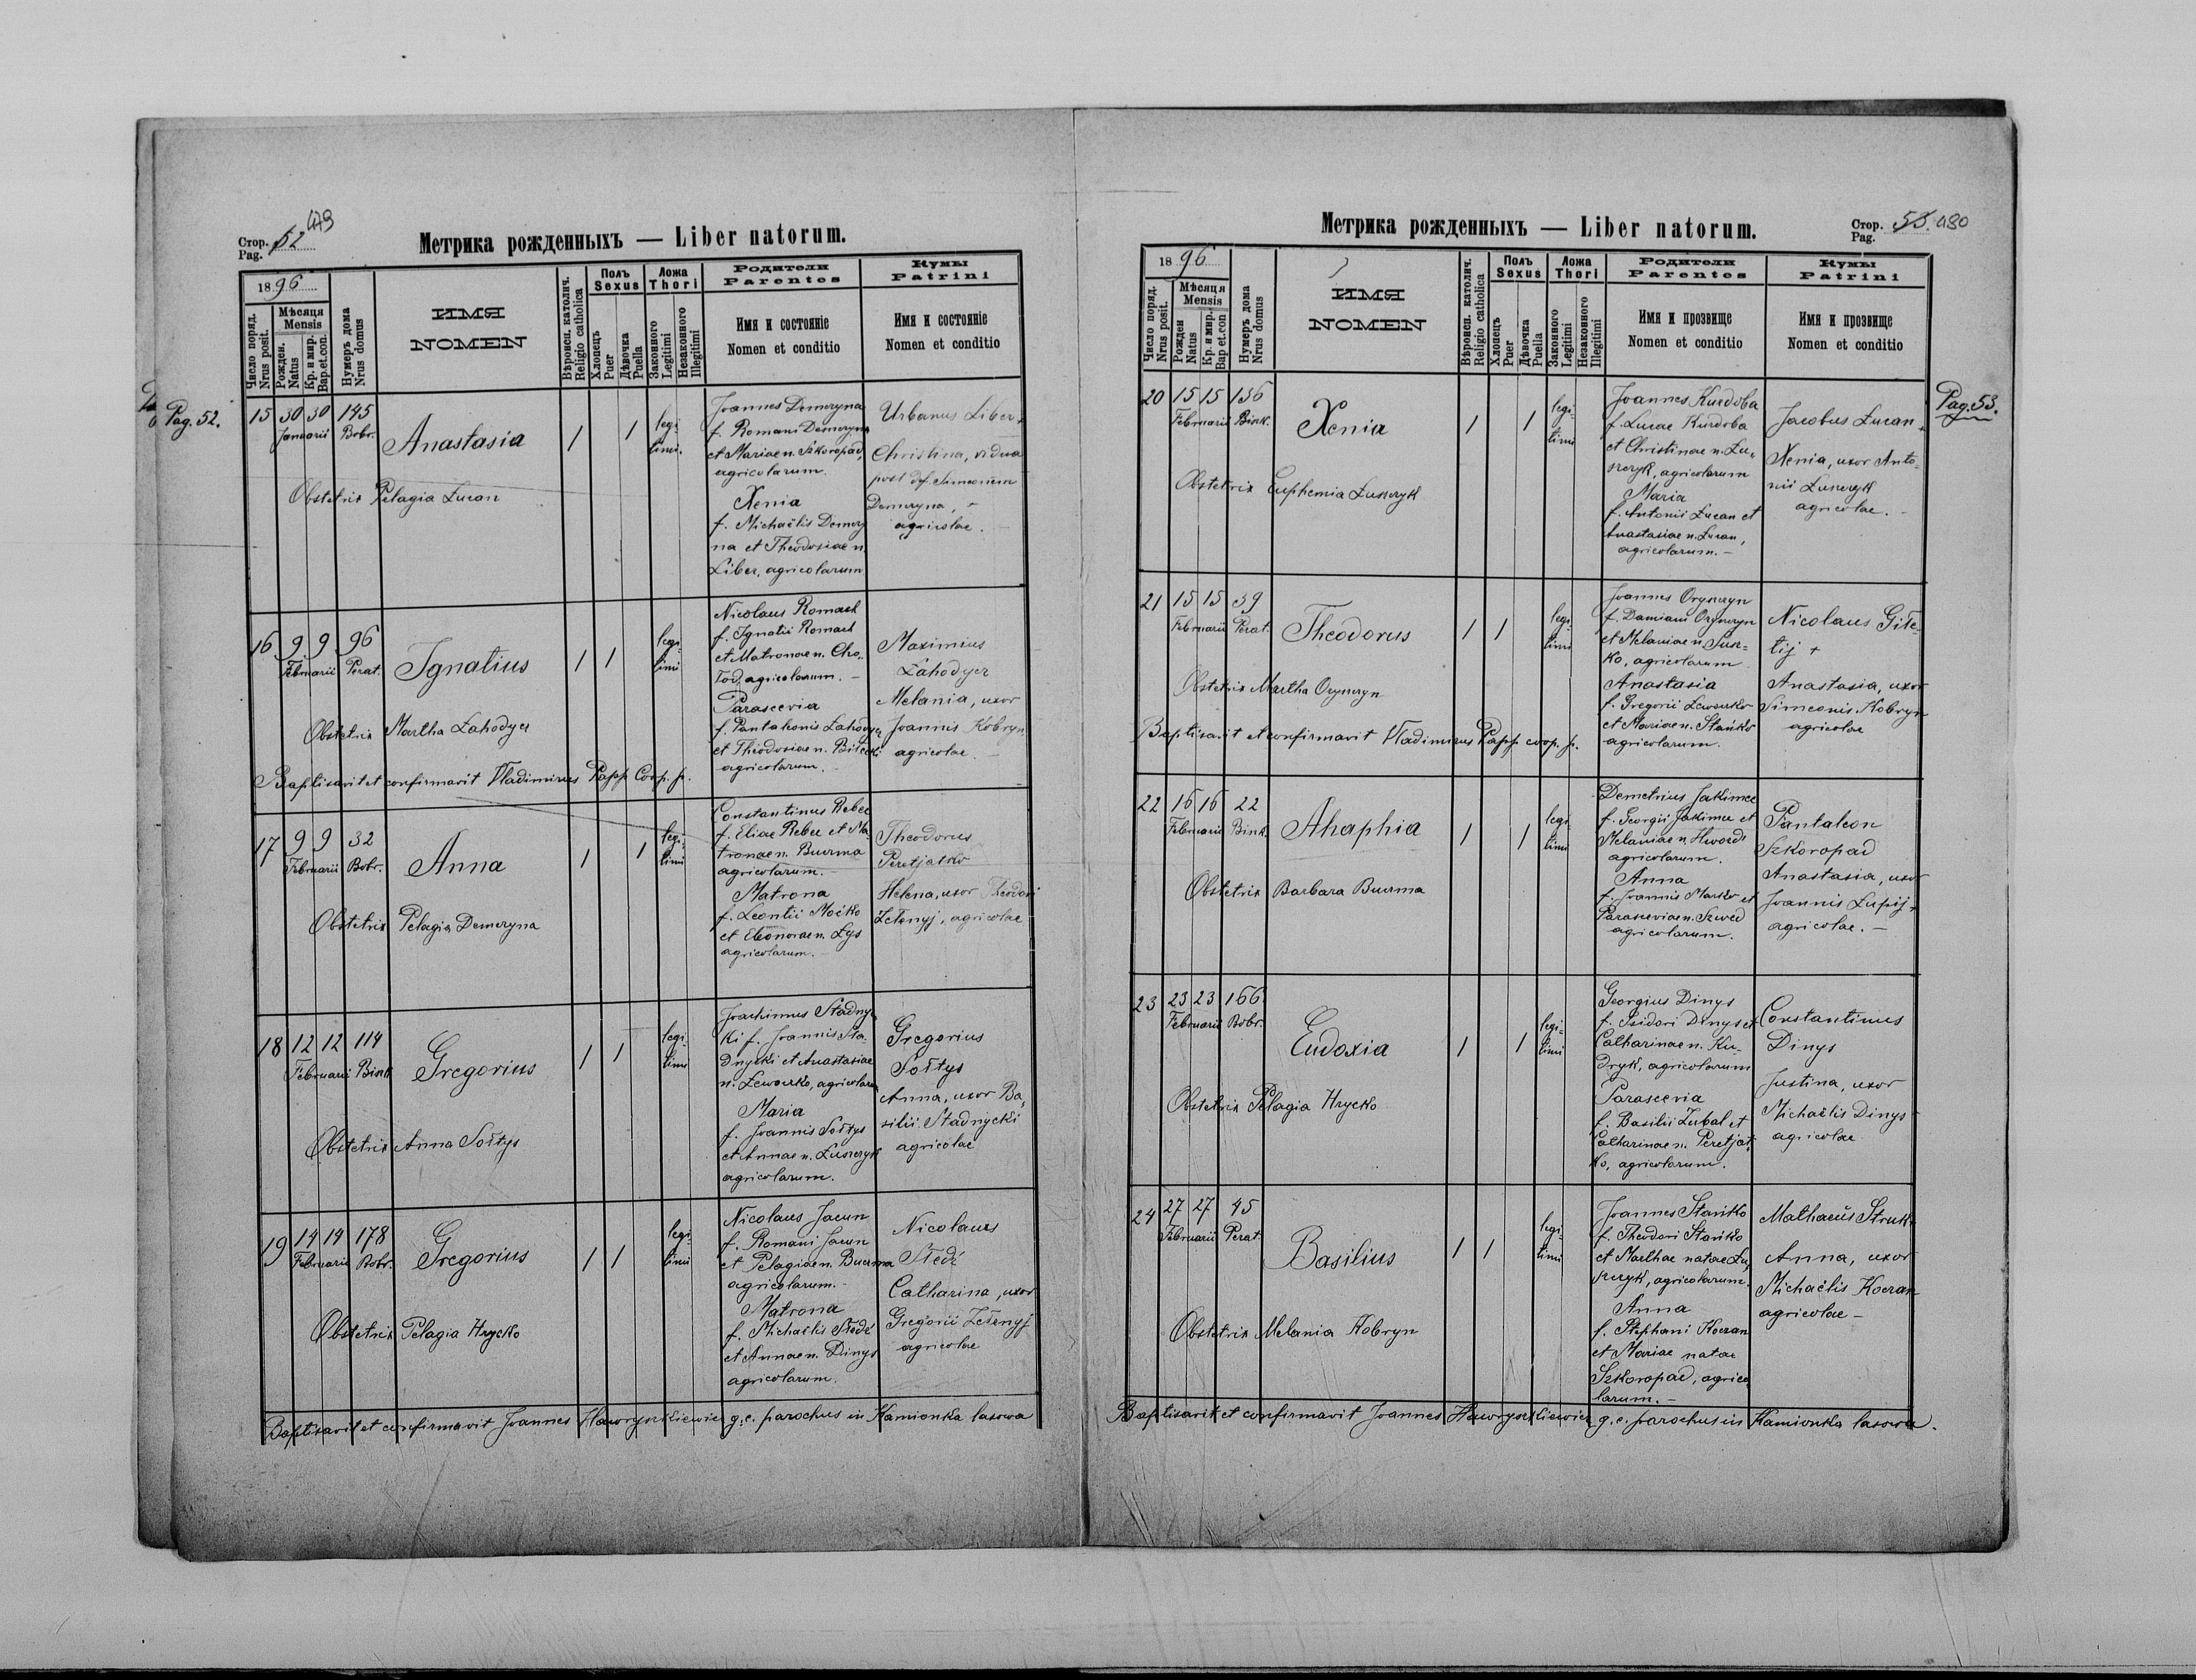 Стор. 52 479
Pag.
Метрика рожденныхъ — Liber natorum.
1896
Число поряд. Nrus posit.
Мѣсяця Mensis
Рожден. Natus
Кр. и мир. Bap.et.con.
Нумеръ дома Nrus domus
ИМЯ
NOMEN
Вѣроисп. католич. Religio catholica
Полъ Sexus
Хлопецъ Puer
Дѣвочка Puella
Ложа Thori
Законного Legitimi
Незаконного Illegitimi
Родители
Parentes
Имя и состоянie
Nomen et conditio
Кумы
Patrini
Имя и состоянie
Nomen et conditio
Pag. 52.
15 30 30 145
Januarii Bobr.
Anastasia
1 1 legi-
timi.
Joannes Demeryna
f. Romani Demeryna
et Mariae n. Szkoropad,
agricolarum.
Xenia
f. Michaëlis Demery
na et Theodosiae n.
Liber, agricolarum
Urbanus Liber +
Christina, vidua
post def. Simeonem
Demeryna, +
agricolae. —
Obstetrix Pelagia Lucan
16 9 9 96
Februarii Perat.
Ignatius
1 1 legi-
timi
Nicolaus Romach
f. Ignatii Romach
et Matronae n. Cho-
rod, agricolarum. —
Parascevia
f. Pantaleonis Lahodycz
et Theodosiae n. Biłecki
agricolarum.
Maximus
Lahodycz
Melania, uxor
Joannis Kobryn
agricolae. —
Obstetrix Martha Lahodycz
Baptisavit et confirmavit Vladimirus Papp Coop. p.
17 9 9 32
Februarii Bobr.
Anna
1 1 legi-
timi
Constantinus Rebec
f. Eliae Rebec et Ma-
tronae n. Bucma
agricolarum.
Matrona
f. Leontii Moćko
et Eleonorae n. Lys
agricolarum. —
Theodorus
Peretjatko
Helena, uxor Theodori
Zełenyj, agricolae
Obstetrix Pelagia Demeryna
18 12 12 114
Februarii Bink
Gregorius
1 1 legi-
timi
Joachimus Stadny-
cki f. Joannis Sta-
dnycki et Anastasiae
n. Lewoczko, agricolarum
Maria
f. Joannis Sołtys
et Annae n. Luszczyk
agricolarum.
Gregorius
Sołtys
Anna, uxor Ba-
silii Stadnycki
agricolae
Obstetrix Anna Sołtys
19 14 14 178
Februarii Bobr.
Gregorius
1 1 legi-
timi
Nicolaus Jacun
f. Romani Jacun
et Pelagiae n. Bucma
agricolarum. —
Matrona
f. Michaëlis Sledź
et Annae n. Dinys
agricolarum.
Nicolaus
Sledź
Catharina, uxor
Gregorii Zełenyj
agricolae
Obstetrix Pelagia Hrycko
Baptisavit et confirmavit Joannes Hawryszkiewicz g. c. parochus in Kamionka lasowa
Метрика рожденныхъ — Liber natorum.
Стор. 53. 480
Pag.
1896
Число поряд. Nrus posit.
Мѣсяця Mensis
Рожден Natus
Кр. и мир. Bap et.con
Нумеръ дома Nrus domus
ИМЯ
NOMEN
Вѣроисп. католич. Religio catholica
Полъ Sexus
Хлопецъ Puer
Дѣвочка Puella
Ложа Thori
Законного Legitimi
Незаконного Illegitimi
Родители
Parentes
Имя и прозвище
Nomen et conditio
Кумы
Patrini
Имя и прозвище
Nomen et conditio
Pag. 53.
20 15 15 156
Februarii Bink.
Xenia
1 1 legi-
timi
Joannes Kurdoba
f. Lucae Kurdoba
et Christinae n. Lu-
szczyk, agricolarum
Maria
f. Antonii Lucan et
Anastasiae n. Lucan,
agricolarum. —
Jacobus Lucan +
Xenia, uxor Anto-
nii Luszczyk
agricolae. —
Obstetrix Euphemia Luszczyk
21 15 15 39
Februarii Perat.
Theodorus
1 1 legi-
timi
Joannes Oryszczyn
f. Damiani Oryszczyn
et Melaniae n. Susz-
ko, agricolarum
Anastasia
f. Gregorii Lewoczko
et Mariae n. Stańko
agricolarum.
Nicolaus Gile-
tij +
Anastasia, uxor
Simeonis Kobryn
agricolae
Obstetrix Martha Oryszczyn
Baptisavit et confirmavit Vladimirus Papp coop. p.
22 16 16 22
Februarii Bink.
Ahaphia
1 1 legi-
timi
Demetrius Jakimec
f. Georgii Jakimec et
Melaniae n. Hwozdź
agricolarum.
Anna
f. Joannis Marko et
Parasceviae n. Szwed
agricolarum.
Pantaleon
Szkoropad
Anastasia, uxor
Joannis Lupij +
agricolae. —
Obstetrix Barbara Bucma
23 23 23 166
Februarii Bobr.
Eudoxia
1 1 legi-
timi
Georgius Dinys
f. Isidori Dinys et
Catharinae n. Ku-
dryk, agricolarum
Parascevia
f. Basilii Zubal et
Catharinae n. Peretjat-
ko, agricolarum.
Constantinus
Dinys
Justina, uxor
Michaëlis Dinys
agricolae
Obstetrix Pelagia Hrycko
24 27 27 45
Februarii Perat
Basilius
1 1 legi-
timi
Joannes Stańko
f. Theodori Stańko
et Marthae natae Lu-
szczyk, agricolarum.
Anna
f. Stephani Koczan
et Mariae natae
Szkoropad, agrico-
larum. —
Mathaeus Struk
Anna, uxor
Michaëlis Koczan
agricolae —
Obstetrix Melania Kobryn
Baptisavit et confirmavit Joannes Hawryszkiewicz g. c. parochus in Kamionka lasowa.